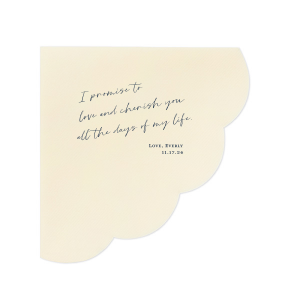 I promise to
love and cherish you
all the days of my life.
LOVE, EVERLY
11.17.26